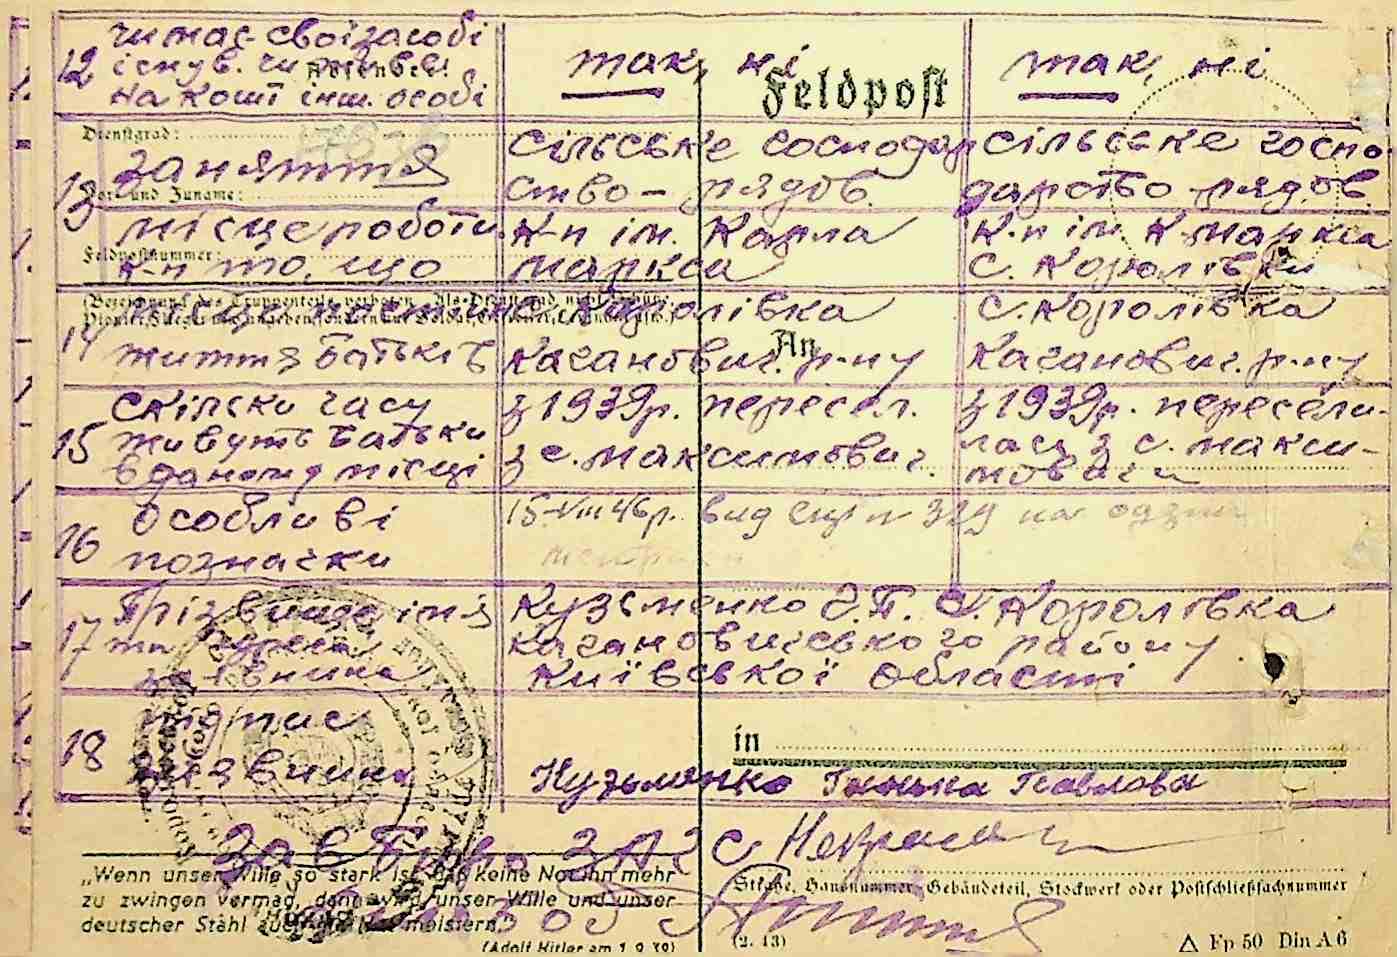 12 чи має свої засобі
існув. чи живе
на кошт інш. особі
так, ні
так, ні
Absender:
Feldpost
Dienstgrad:
13 заняття
сільське господар
ство – рядов.
сільське госпо-
дарство рядов.
Vor- und Zuname:
місце роботи
к-п то, що
К-п ім. Карла
Маркса
К-п ім. К Маркса
с. Королівки
Feldpostnummer:
14 місце постійне
життя батьків
Королівка
Каганович. р-ну
с. Королівка
Каганович. р-ну
An
15 скільки часу
живуть батьки
в даному місці
з 1939р. пересел.
з с. Максимович.
з 1939р. пересели-
лась з с. Макси-
мовичи
16 Особливі
позначки
15-VIII 46р. вид
17 Прізвище ім'я
та
Кузьменко Г.П. С. Королівка
Кагановичського району
Київської Області
18 підпис
in
Кузьменко Ганька Павлова
Зав Бюро ЗАГС
„Wenn unser Wille so stark ist, daß keine Not ihn mehr
zu zwingen vermag, dann wird unser Wille und unser
deutscher Stahl auch die Not meistern.“
(Adolf Hitler am 1. 9. 39)
Straße, Hausnummer, Gebäudeteil, Stockwerk oder Postschließfachnummer
(2. 43)
△ Fp 50 Din A 6